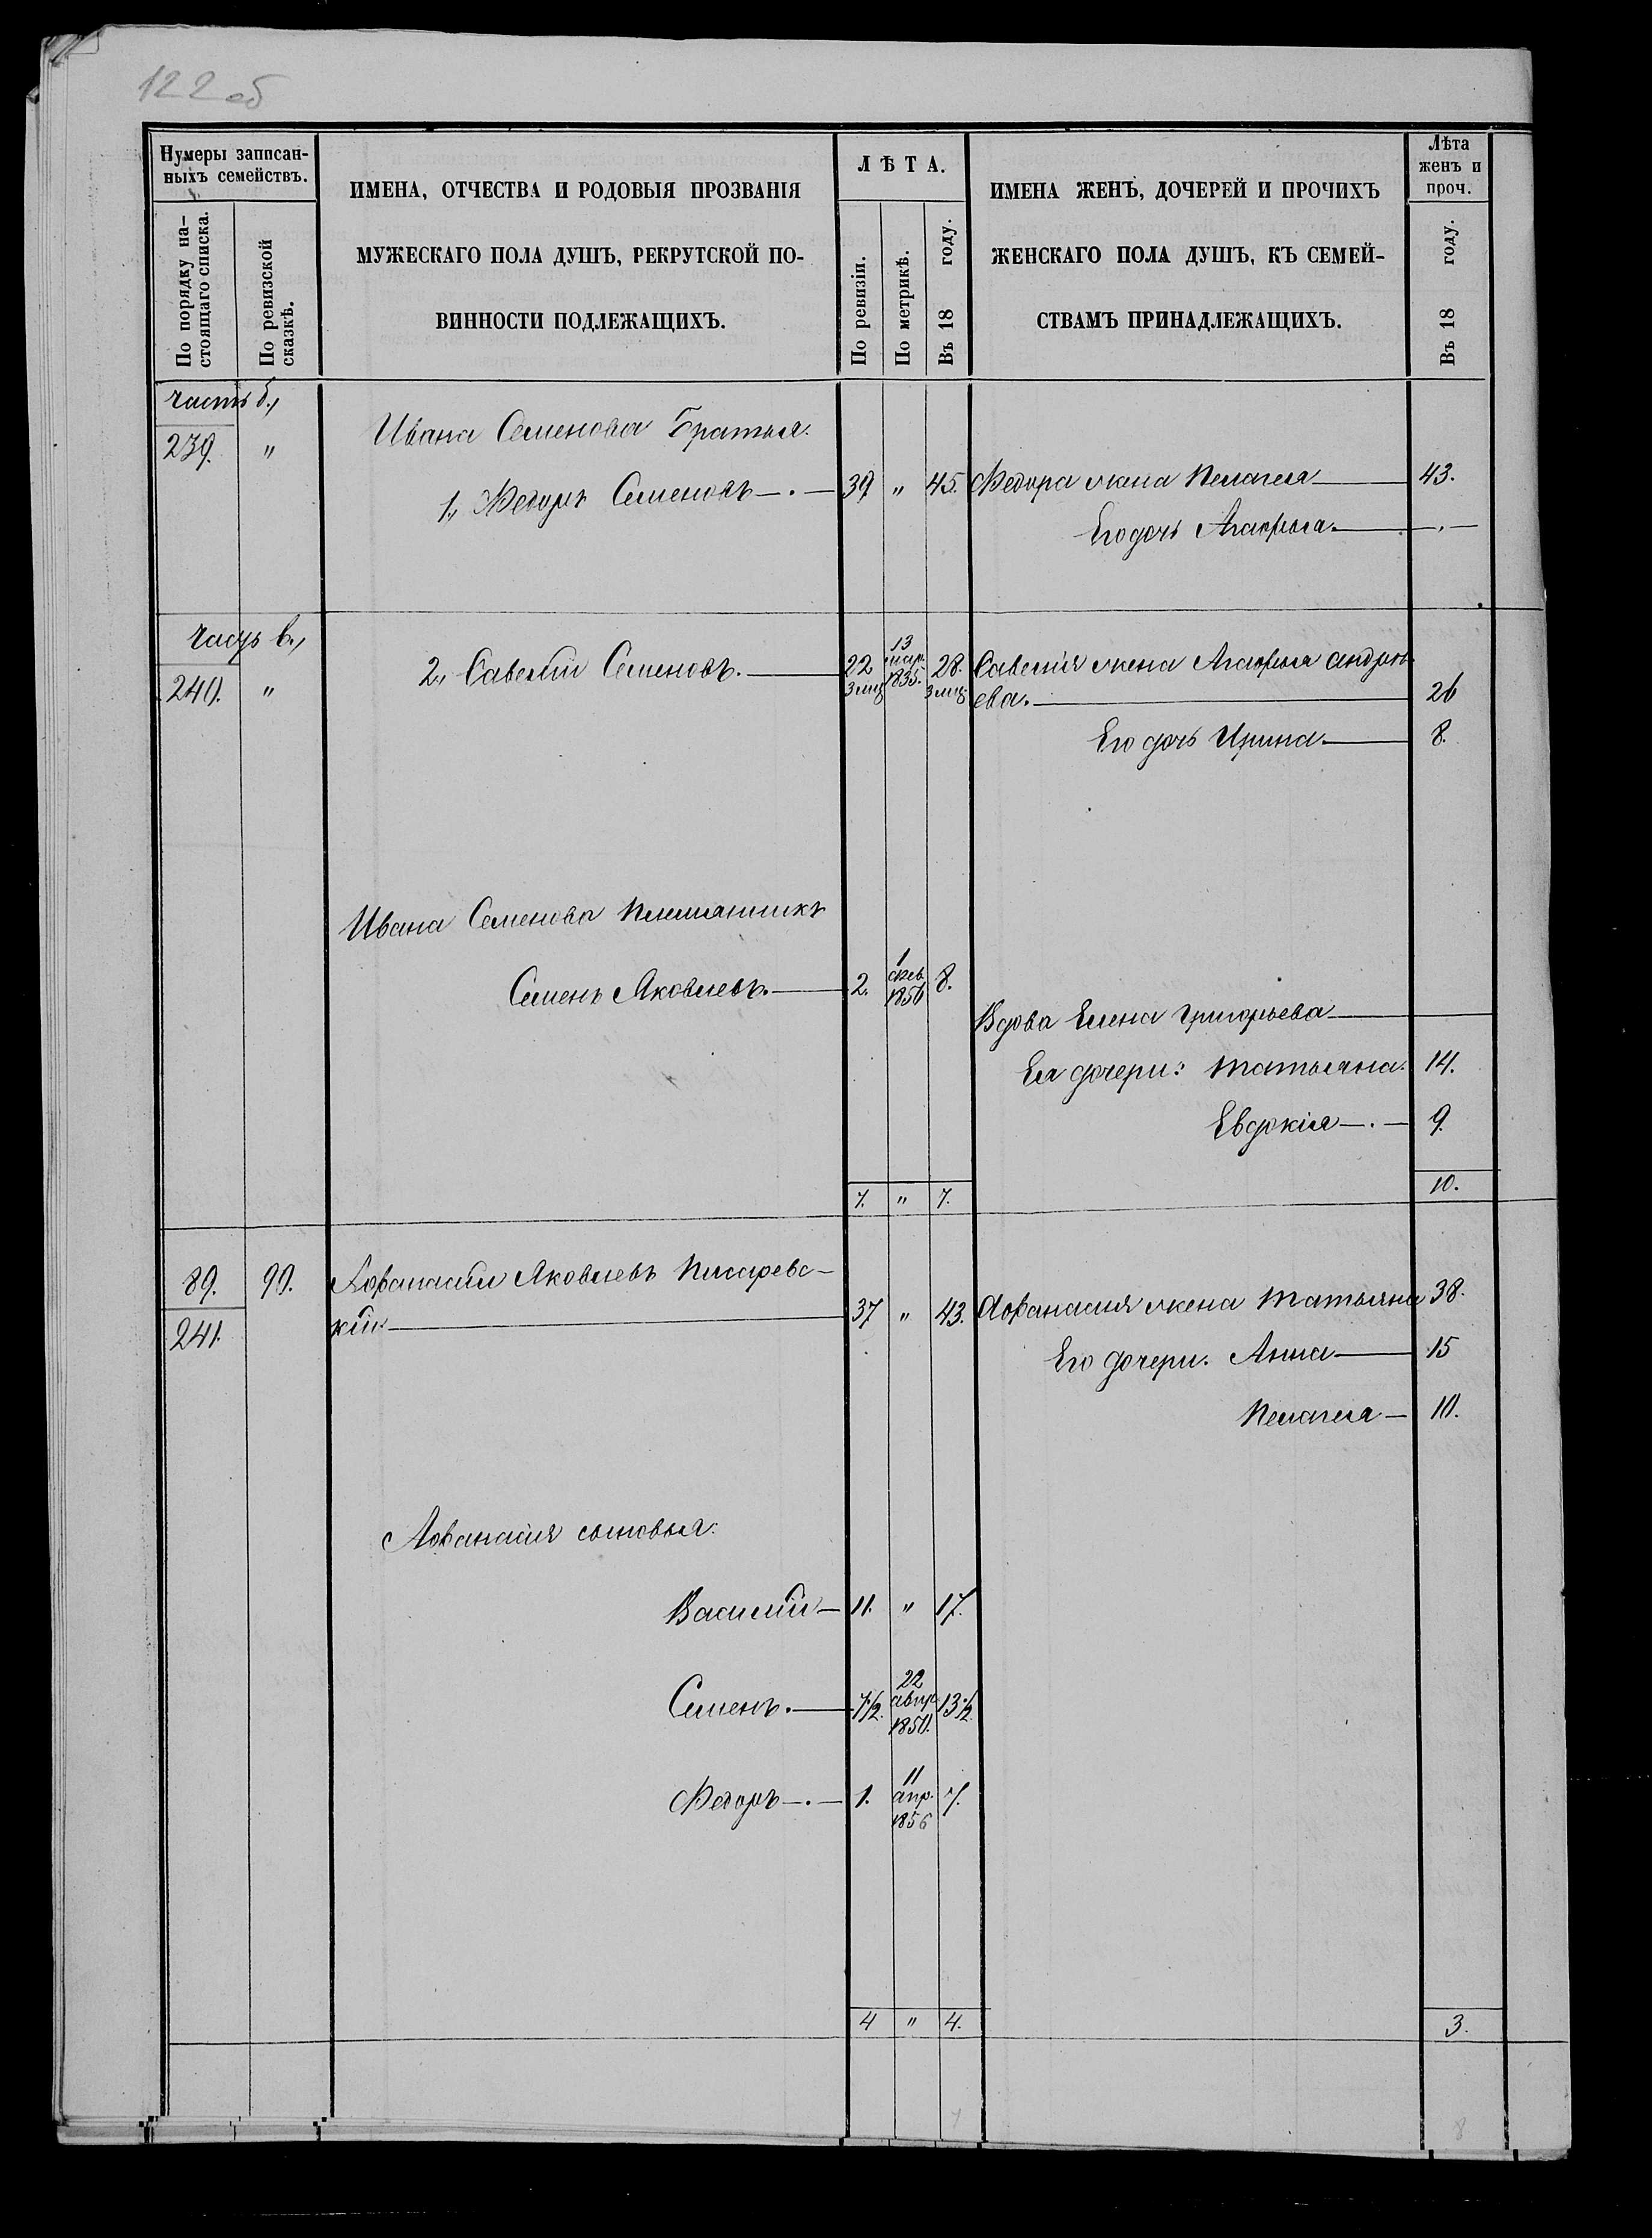 122 об
Нумеры записан-
ныхъ семействъ.
По порядку на-
стоящаго списка.
По ревизской
сказкѣ.
ИМЕНА, ОТЧЕСТВА И РОДОВЫЯ ПРОЗВАНІЯ
МУЖЕСКАГО ПОЛА ДУШЪ, РЕКРУТСКОЙ ПО-
ВИННОСТИ ПОДЛЕЖАЩИХЪ.
ЛѢТА.
По ревизіи.
По метрикѣ.
Въ 18 году.
ИМЕНА ЖЕНЪ, ДОЧЕРЕЙ И ПРОЧИХЪ
ЖЕНСКАГО ПОЛА ДУШЪ, КЪ СЕМЕЙ-
СТВАМЪ ПРИНАДЛЕЖАЩИХЪ.
Лѣта
женъ и
проч.
Въ 18 году.
часть б.,
239. "
Ивана Семенова Братья.
1., Федоръ Семеновъ —.— 39 " 45. Федора жена Пелагея — 43.
Его дочь Агафья. — . —
часть в.,
240. "
2., Савелій Семеновъ. — 22 3 мц 13 мар. 1835. 28. 3 мц. Савелія жена Агафья Андрѣ-
ева. — 26
Его дочь Ирина. — 8.
Ивана Семенова племянникъ
Семенъ Яковлевъ. — 2. 1 фев 1856 8.
Вдова Елена Григорьева —
Ея дочери: Татьяна. 14.
Евдокія —.— 9.
7. " 7. 10.
89. 90. Афанасій Яковлевъ Писаревс-
241. кій. — 37 " 43. Афанасія жена Татьяна 38.
Его дочери. Анна — 15
Пелагея — 10.
Афанасія сыновья:
Василій — 11. " 17.
Семенъ. — 7 1/2. 22 апр 1850. 13 1/2.
Федоръ —.— 1. 11 апр. 1856 7.
4 " 4. 3.
7 8